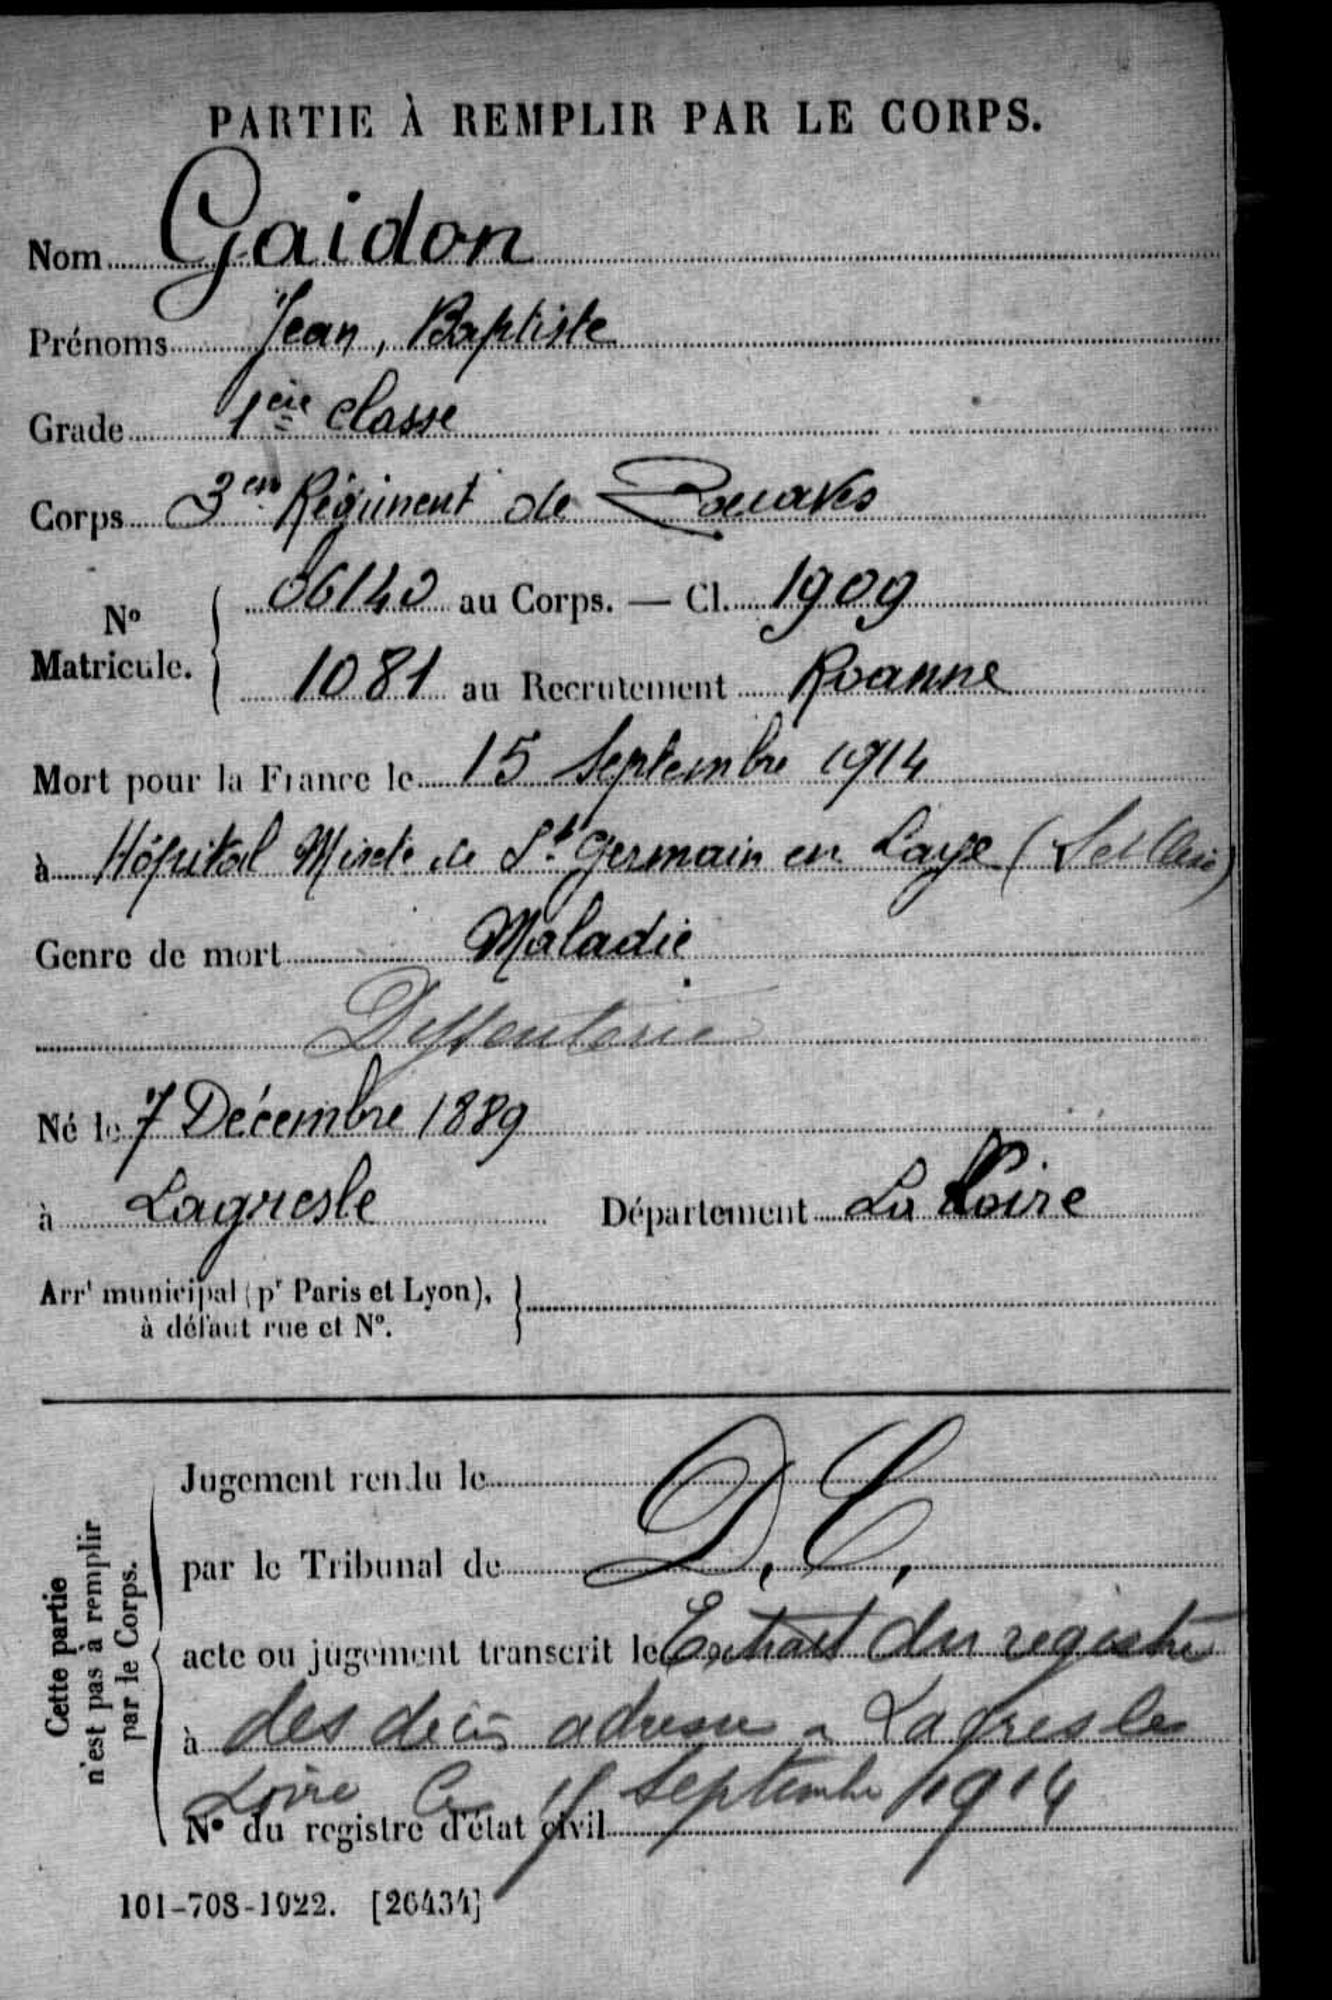 PARTIE À REMPLIR PAR LE CORPS.
Nom Gaidon
Prénoms Jean, Baptiste
Grade 1ère classe
Corps 3em Régiment de Zouaves
No Matricule. { 06140 au Corps. — Cl. 1909
1081 au Recrutement Roanne
Mort pour la France le 15 Septembre 1914
à Hôpital Mixte de St Germain en Laye (
Genre de mort Maladie
Dyssenterie
Né le 7 Décembre 1889
à Lagresle Département La Loire
Arrt municipal (pr Paris et Lyon), }
à défaut rue et No.
Cette partie
n'est pas à remplir
par le Corps.
Jugement rendu le
par le Tribunal de D. C.
acte ou jugement transcrit le Extrait du registre
à des décès adressé a La Gresle
Loire le septembre 1914
No du registre d'état civil
101-708-1922. [26434]